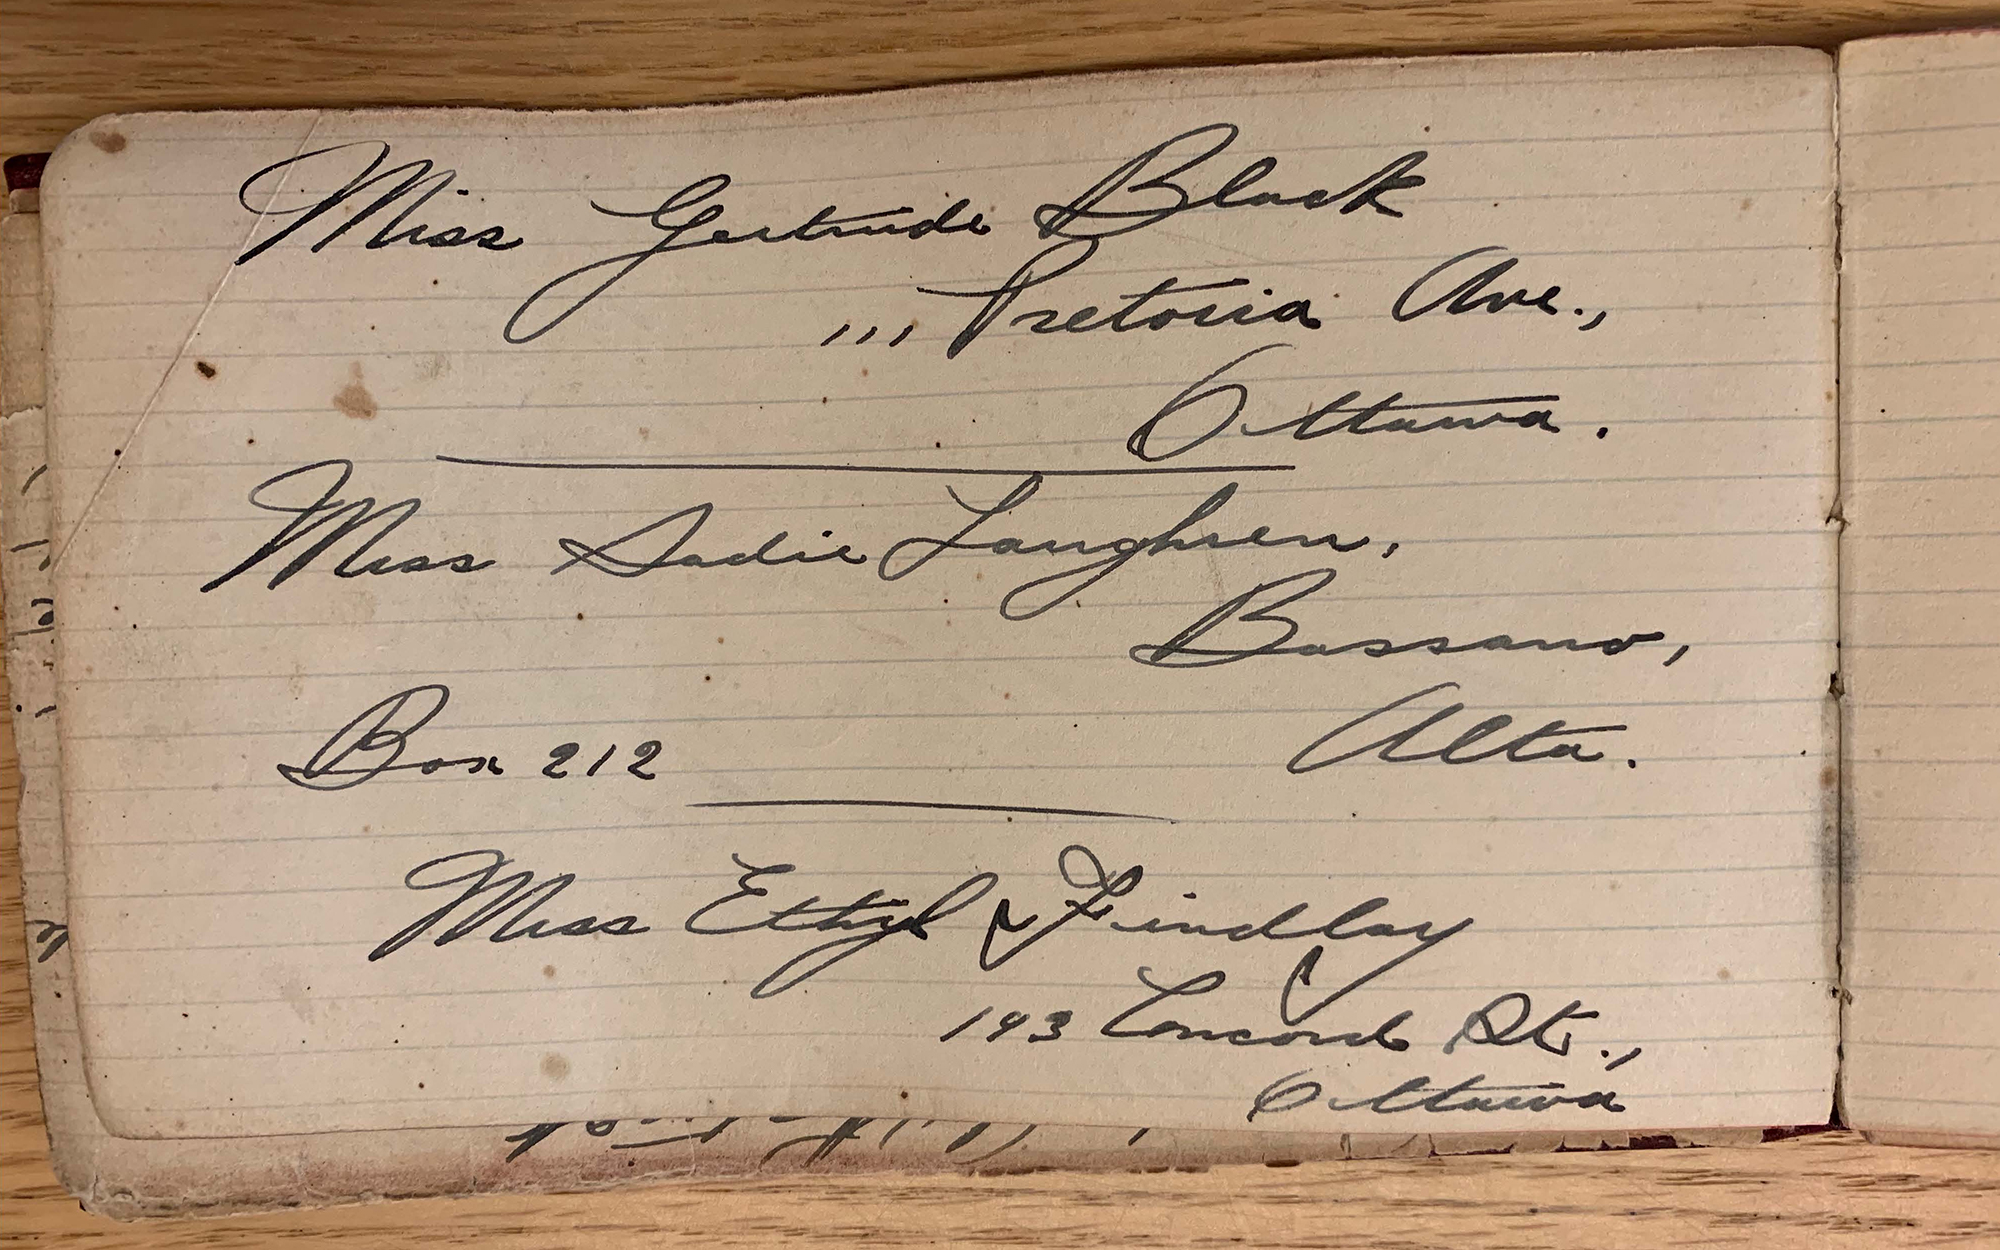 Miss Gertrude Black
111 Pretoria Ave.,
Ottawa.
Miss Sadie Laughren,
Bassano,
Box 212 Alta.
Miss Ethyl Findlay
193 Concord St.,
Ottawa